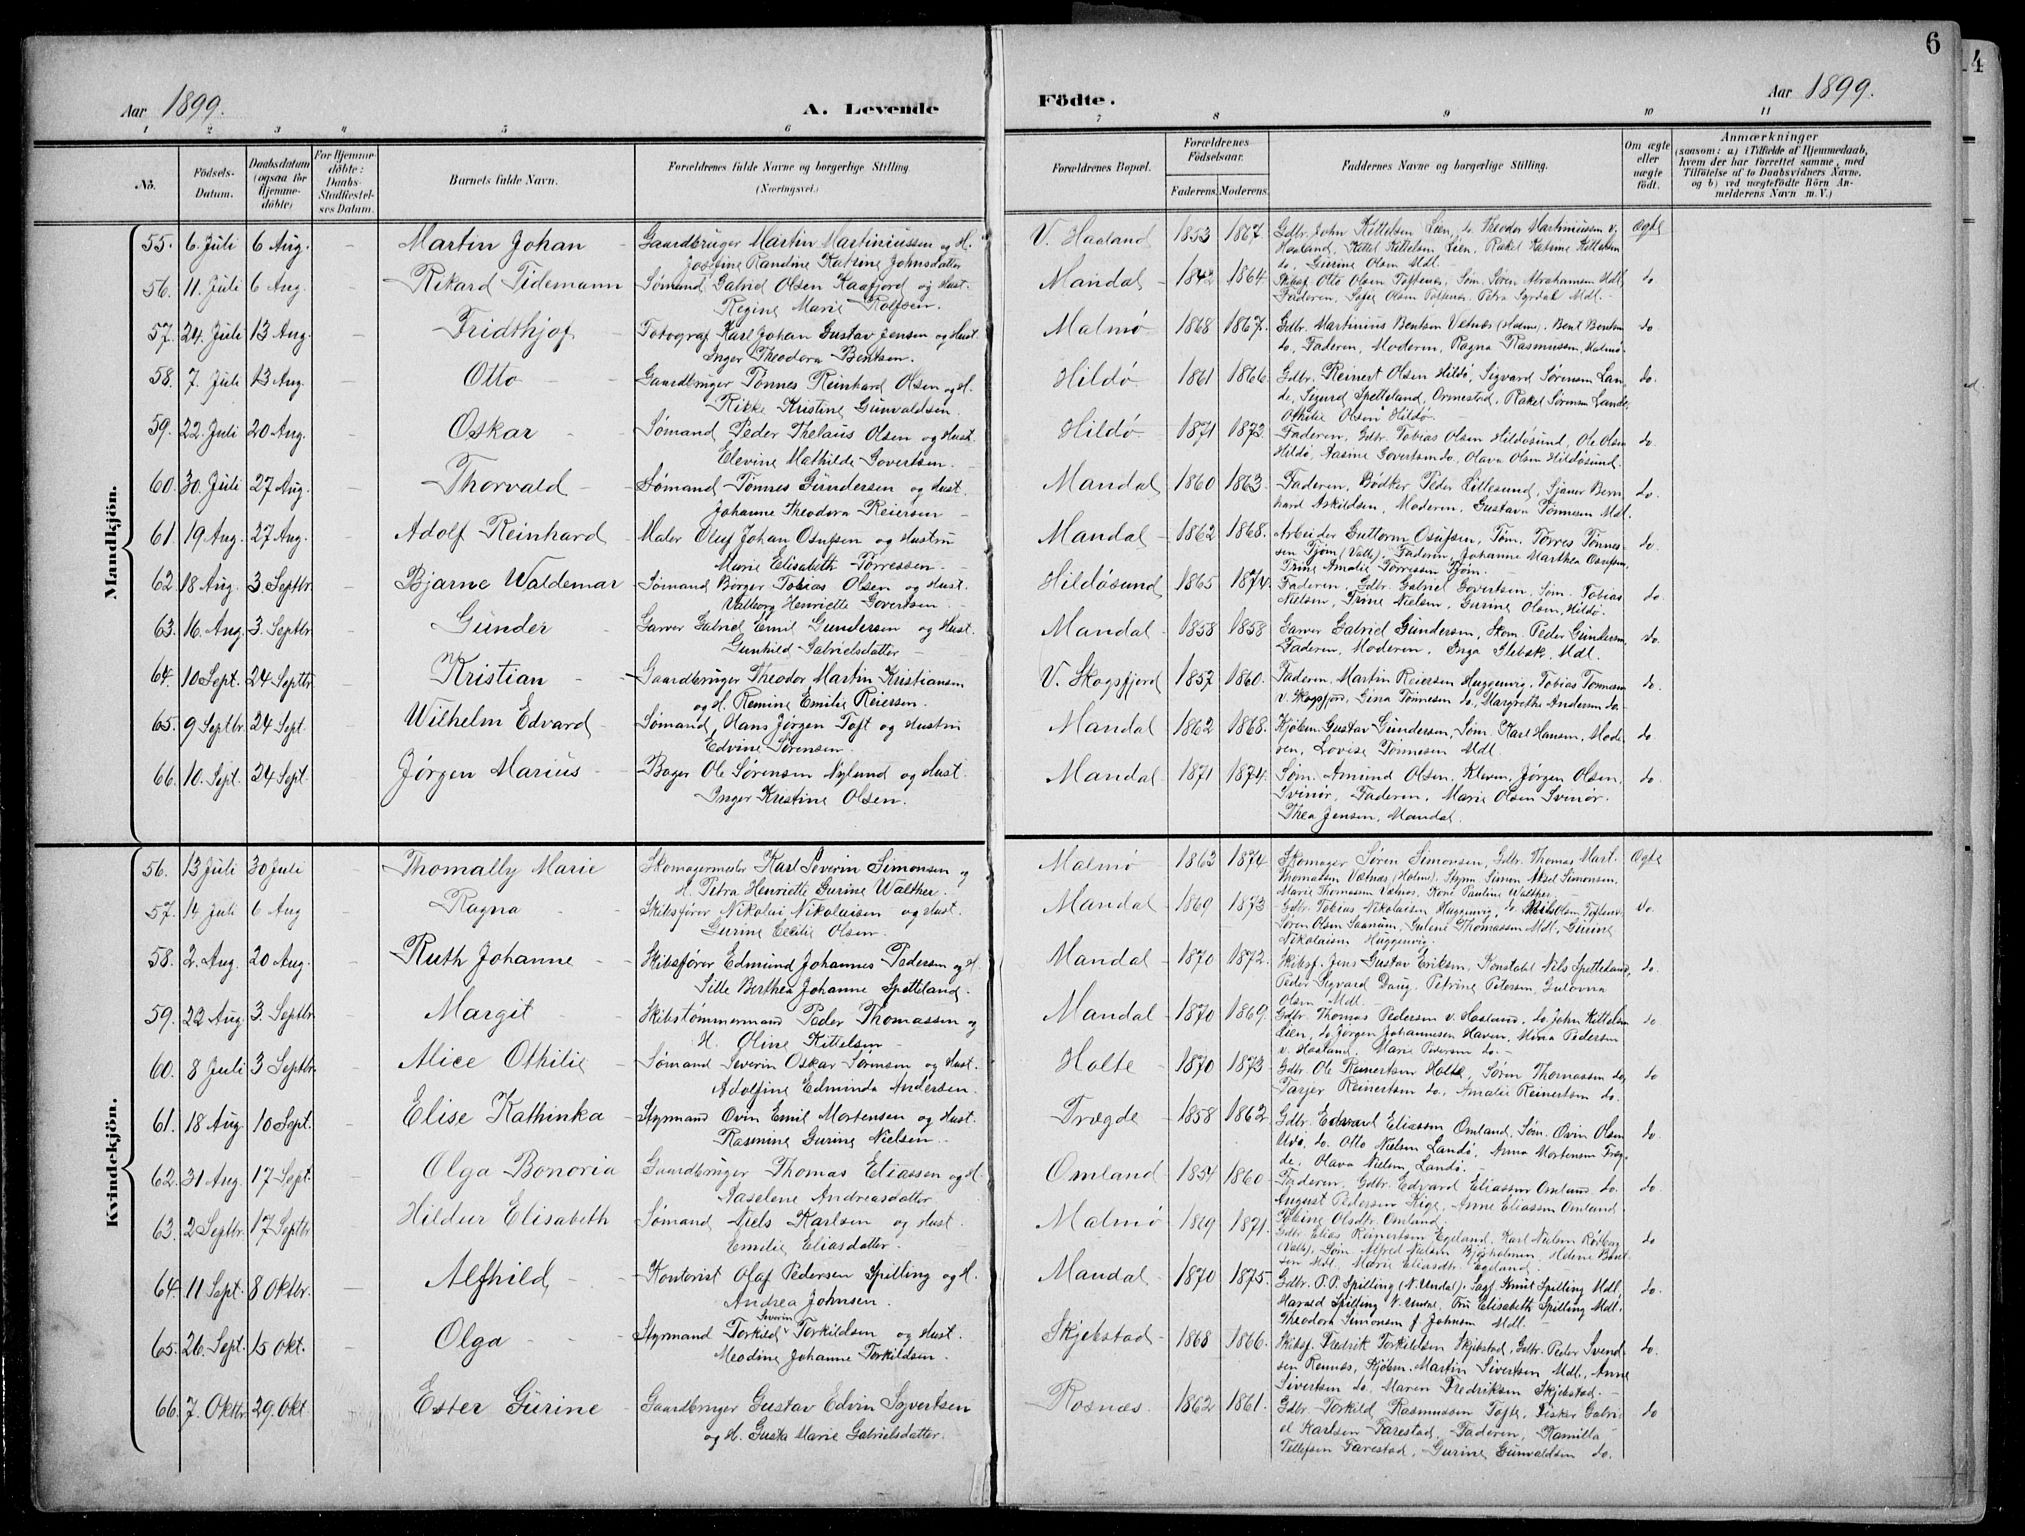 6
4
Aar 1899.
A. Levende
Födte.
Aar 1899.
1 2 3 4 5 6 7 8 9 10 11
No.
Födsels-Datum.
Daabsdatum (ogsaa for Hjemme-döbte)
For Hjemme-döbte: Daabs-Stadfæstel-ses Datum.
Barnets fulde Navn.
Forældrenes fulde Navne og borgerlige Stilling (Næringsvei.)
Forældrenes Bopæl.
Forældrenes Födselsaar.
Faderens. Moderens.
Faddernes Navne og borgerlige Stilling.
Om ægte eller uægte födt.
Anmærkninger (saasom: a) i Tilfælde af Hjemmedaab, hvem der har forrettet samme, med Tilföielse af to Daabsvidners Navne, og b) ved uægtefödte Börn An-melderens Navn m. V.)
Mandkjön.
55. 6. Juli 6 Aug. - Martin Johan - Gaardbruger Martin Martiniussen og H. Josefine Randine Katrine Johnsdatter V. Haaland 1853 1867. Gdbr. John Kittelsen Lien, do. Theodor Martiniussen v. Haaland, Kittel Kittelsen Lien, Rakel Katrine Kittelsen do, Gurine Olsen Mdl. Ægte
56. 11. Juli 6 Aug. - Rikard Tidemann Sømand Gabriel Olsen Kaafjord og Hust. Regine Marie Rolfsen. Mandal 1842 1864. Skibsf. Otto Olsen Toftenes, Søm. Søren Abrahamsen Mdl, Faderen, Sofie Olsen Toftenes, Petra Syrdal Mdl. do
57. 24. Juli 13 Aug. - Fridthjof Fotograf Karl Johan Gustav Jensen og Hust. Inger Theodora Bentsen. Malmø 1868 1867. Gdbr. Martinius Bentsen Vetnes (Holme), Bent Bentsen do, Faderen, Moderen, Ragna Rasmussen, Malmø do
58. 7. Juli 13 Aug. - Otto Gaardbruger Tønnes Reinhard Olsen og H. Rikke Kristine Gunvaldsen. Hildø 1861 1866. Gdbr. Reinert Olsen Hildø, Sigvard Sørensen Lan-de, Sigurd Spetteland, Ormestad, Rakel Sørensen Lande, Othilie Olsen Hildø do.
59. 22. Juli 20 Aug. - Oskar Sømand Peder Thelaus Olsen og Hust. Elevine Mathilde Govertsen. Hildø 1871 1872. Faderen, Gdbr. Tobias Olsen Hildøsund, Ole Olsen Hildø, Aasine Govertsen do, Olava Olsen Hildøsund. do.
60. 30. Juli 27 Aug. - Thorvald Sømand Tønnes Gundersen og Hust. Johanne Theodora Reiersen Mandal 1860 1863. Faderen, Bødker Peder Lillesund, Sjauer Bern-hard Askildsen, Moderen, Gustava Tønnesen Mdl. do.
61. 19 Aug. 27 Aug. - Adolf Reinhard Maler Oluf Johan Osufsen og Hustru Marie Elisabeth Torressen. Mandal 1862 1868. Arbeider Guttorm Osufsen, Tøm. Torres Tønnes-sen Tjøm (Valle), Faderen, Johanne Marthea Osufsen, Trine Amalie Torressen Tjøm. do.
62 18 Aug. 3. Septbr. - Bjarne Waldemar Sømand Børger Tobias Olsen og Hust. Valborg Henriette Govertsen. Hildøsund 1865 1874. Faderen, Gdbr. Gabriel Govertsen, Søm. Tobias Nielsen, Trine Nielsen, Gurine Olsen, Hildø. do.
63. 16 Aug. 3. Septbr. - Gunder Garver Gabriel Emil Gundersen og Hust. Gunhild Gabrielsdatter Mandal 1858 1858 Garver Gabriel Gundersen, Skom. Peder Gundersen, Faderen, Moderen, Inga Glebsk. Mdl. do.
64. 10 Sept. 24 Septbr. - Kristian Gaardbruger Theodor Martin Kristiansen og H. Remine Emilie Reiersen. V. Skogsfjord 1857 1860. Faderen, Martin Reiersen Huggenvig, Tobias Tønnesen v. Skogsfjord, Gina Tønnesen do, Margrethe Andersen do. do.
65. 9 Septbr. 24 Sept. - Wilhelm Edvard Sømand Hans Jørgen Toft og Hustru Edvine Sørensen. Mandal 1862 1868. Kjøbm. Gustav Gundersen, Søm. Karl Hansen, Mode-ren, Lovise Tønnesen Mdl. do.
66. 10. Sept. 24 Sept. - Jørgen Marius Bager Ole Sørensen Nylund og Hust. Inger Kristine Olsen. Mandal 1871 1874. Søm. Amund Olsen, Kleven, Jørgen Olsen, Svinør, Faderen, Marie Olsen Svinør. Thea Jensen, Mandal. do.
Kvindekjön.
56. 13 Juli 30 Juli - Thomally Marie Skomagermester Karl Severin Simonsen og H. Petra Henriette Gurine Walther. Malmø 1863 1874. Skomager Søren Simonsen, Gdbr. Thomas Mart. Thomassen Vætnes (Holme), Styrm. Simon Aksel Simonsen, Marie Thomassen Vætnes, Kone Pauline Walther. Ægte
57. 14 Juli 6 Aug - Ragna Skibsfører Nikolai Nikolaisen og Hust. Gurine Cecilie Olsen. Mandal 1869 1873 Gdbr. Tobias Nikolaisen Huggenvig, do. Nils Olsen Toftenes, Søren Olsen Saanum, Gulene Thomassen Mdl, Gurine Nikolaisen Huggenvig. do.
58. 2. Aug. 20 Aug. - Ruth Johanne Skibsfører Edmund Johannes Pedersen og H. Sille Berthea Johanne Spetteland. Mandal 1870 1872. Skibsf. Jens Gustav Eriksen, Konstabel Nils Spetteland, Peder Sigvard Daug, Petrine Petersen, Gulovna Olsen Mdl. do.
59. 22 Aug. 3. Septbr. - Margit Skibstømmermand Peder Thomassen og H. Oline Kittelsen Mandal 1870 1869. Gdbr. Thomas Pedersen v. Haaland, do. John Kittelsen Lien, do. Jørgen Johannesen Haven, Mina Pedersen v. Haaland, Marie Pedersen do. do
60. 8 Juli 3 Septbr. - Alice Othilie Sømand Severin Oskar Sørensen og Hust. Adolfine Edminda Andersen. Holte 1870 1873 Gdbr. Ole Reinertsen Holte, Søren Thomassen do, Tarjer Reinertsen do, Amalie Reinertsen do. do
61. 18 Aug 10 Sept. - Elise Kathinka Styrmand Ovin Emil Mortensen og Hust. Rasmine Gurine Nielsen. Trægde 1858 1862. Gdbr. Edvard Eliassen Omland, Søm. Ovin Olsen Uvø, do. Otto Nielsen Landø, Anna Mortensen Træg-de, Olava Nielsen, Landø. do.
62. 31 Aug. 17 Sept. - Olga Bonoria Gaardbruger Thomas Eliassen og H. Aaselene Andreasdatter. Omland 1854 1860. Faderen, Gdbr. Edvard Eliassen Omland, do. August Pedersen Kige, Anne Eliassen Omland. Tobine Olsdtr. Omland. do.
63. 2 Septbr. 17 Septbr. - Hildur Elisabeth Sømand Niels Karlsen og Hust. Emilie Eliasdatter. Malmø 1869 1871. Gdbr. Elias Reinertsen Egeland, Karl Nielsen (Valle), Søm. Alfred Nielsen Bjørholmen, Helene Bent-sen Mdl, Marie Eliasdtr. Egeland. do
64. 11 Sept. 8 Oktbr. - Alfhild Kontorist Olaf Pedersen Spilling og H. Andrea Johnsen. Mandal 1870 1875. Gdbr. P.P. Spilling (N. Undal), Sagf. Knut Spilling Mdl, Harald Spilling N. Undal, Fru Elisabeth Spilling Mdl, Theodora Simonsen f. Johnsen Mdl. do.
65. 26. Sept. 15 Okt. - Olga Styrmand Torkild Severin Torkildsen og Hust. Meodine Johanne Torkildsen. Skjebstad 1868 1866. Skibsf. Fredrik Torkildsen Skjebstad, Gdbr. Peder Svend-sen Rønnes, Kjøbm. Martin Sivertsen Mdl, Anne Sivertsen do, Maren Fredriksen Skjebstad. do
66. 7. Oktbr. 29. Okt. Ester Gurine Gaardbruger Gustav Edvin Sayvertsen og H. Gusta Marie Gabrielsdatter. Rosnæs 1862 1861. Gdbr. Torkild Rasmussen Tofte, Fisker Gabri-el Karlsen Farestad, Faderen, Kamilla Tellefsen Farestad, Gurine Gunvaldsen do. do